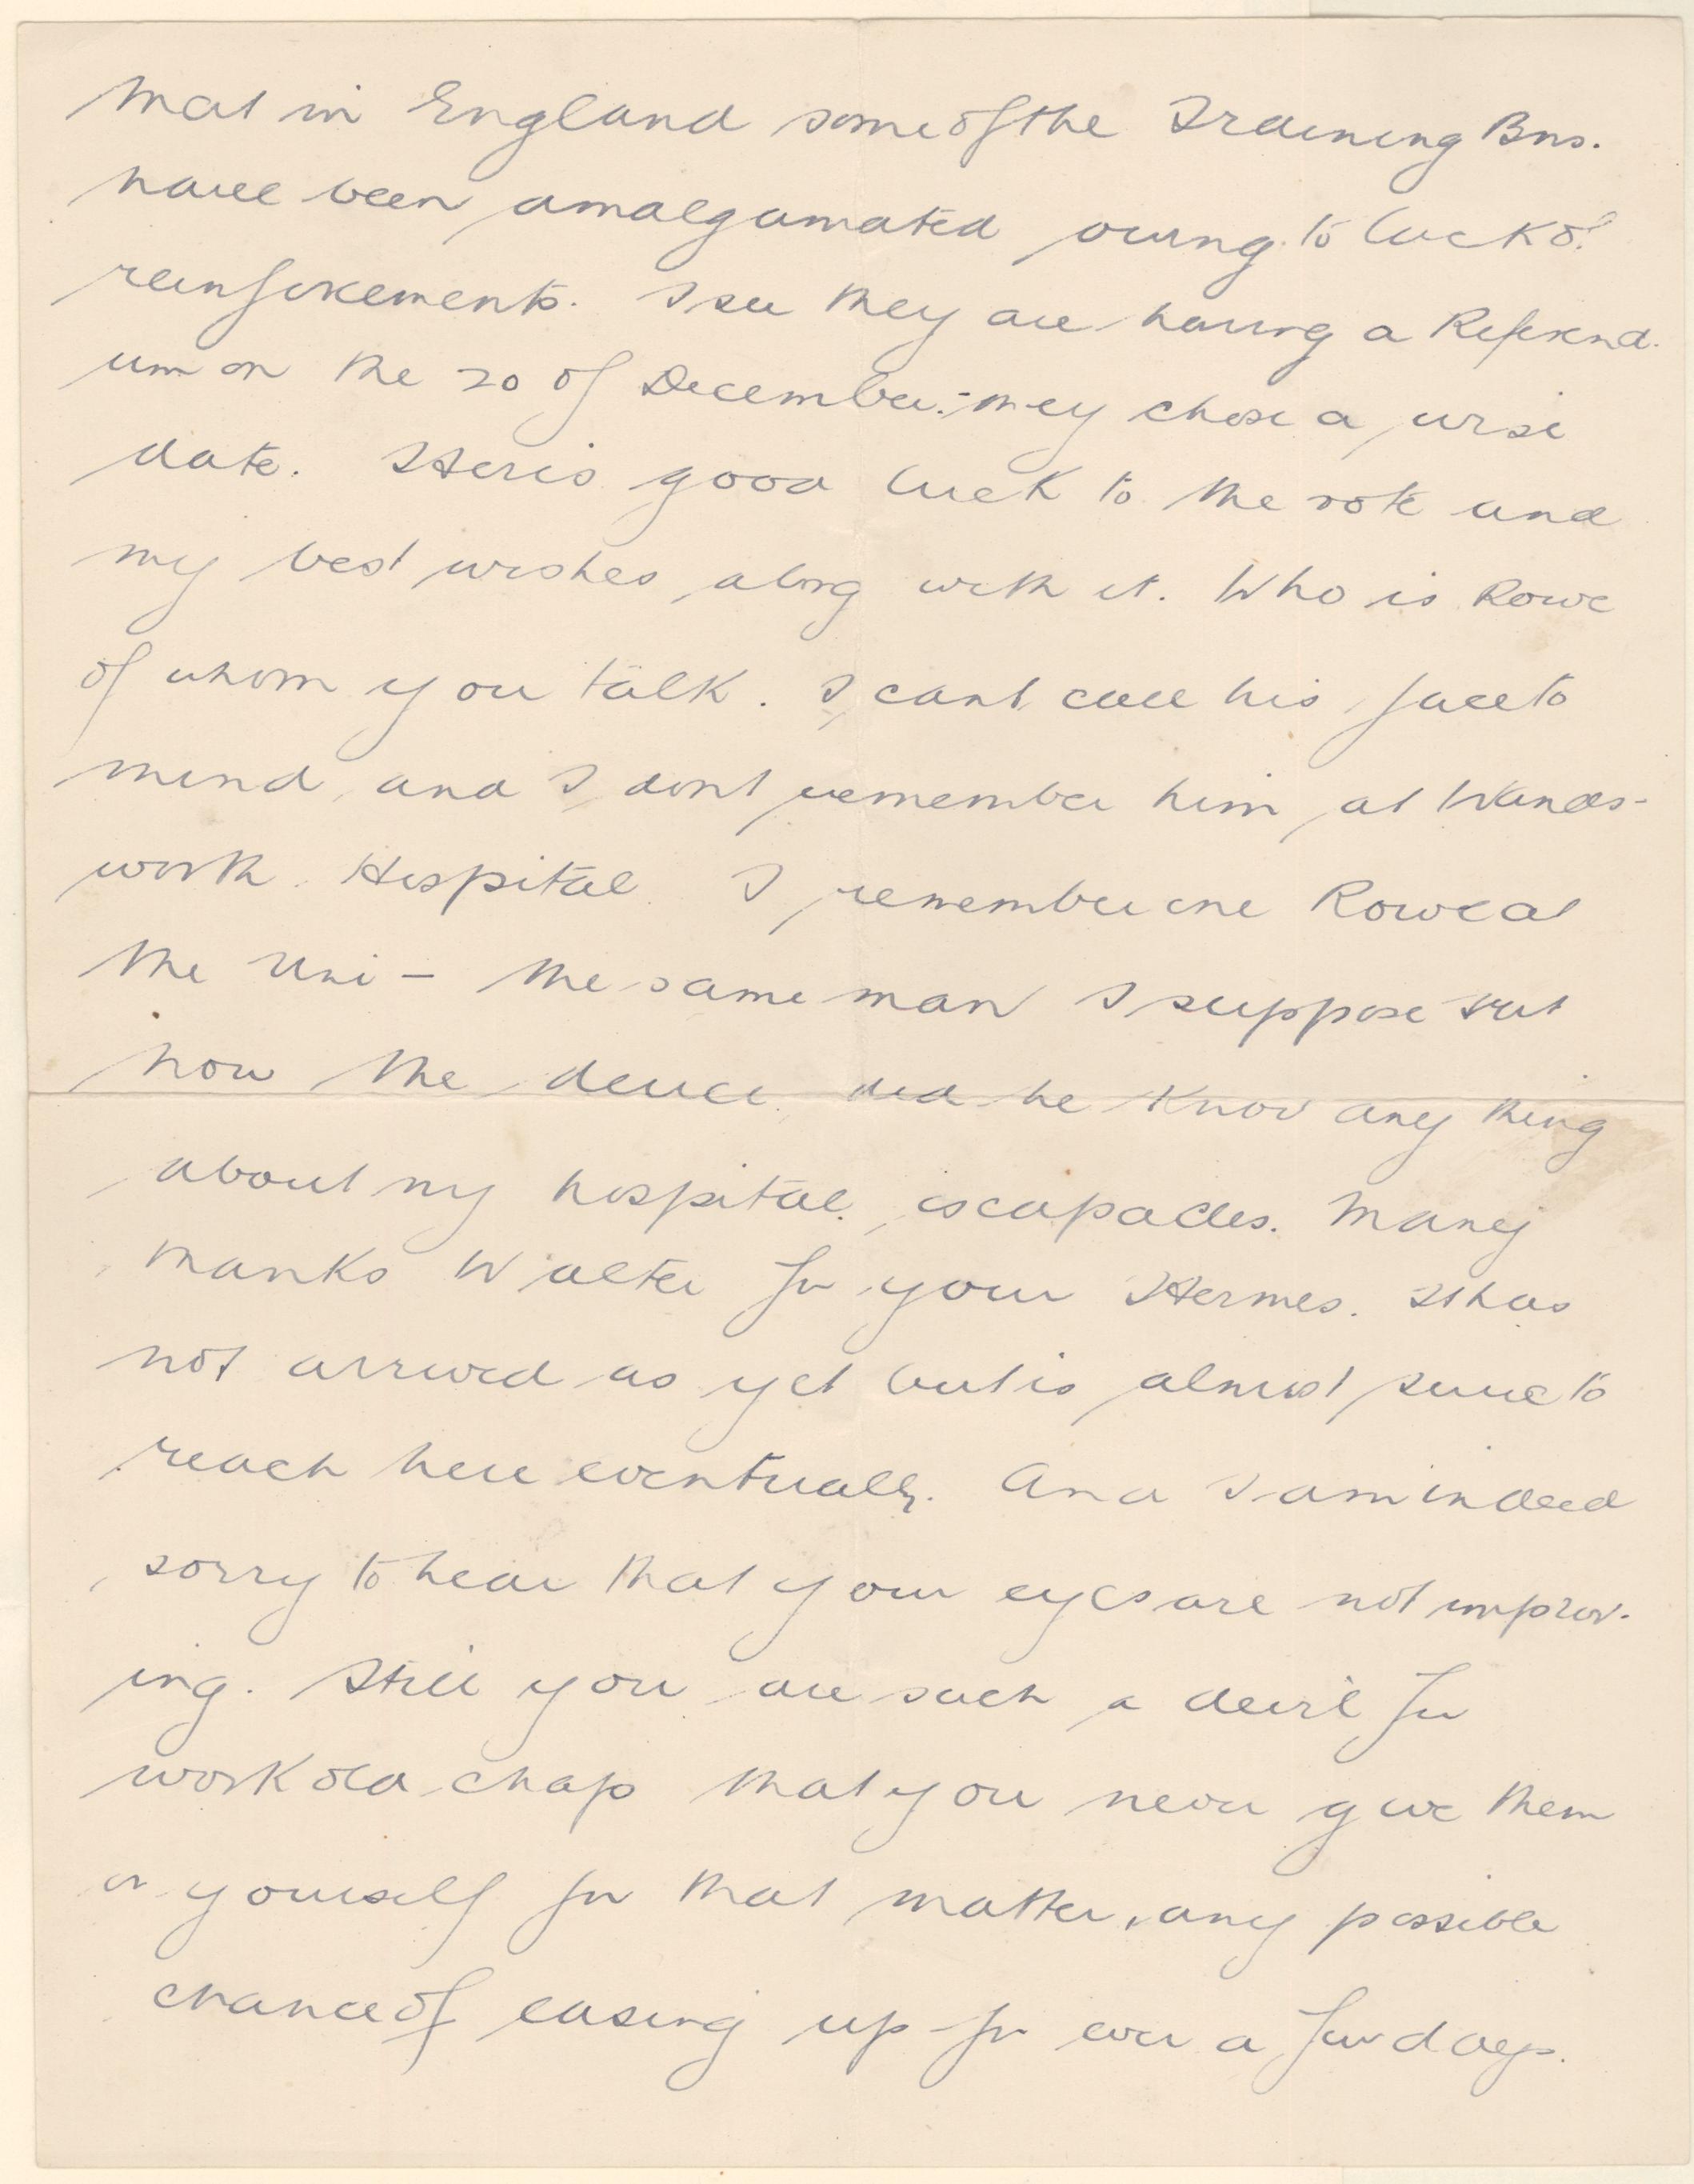 that in England some of the Training Bns.
have been amalgamated owing to lack of
reinforcements. I see they are having a Referend-
um on the 20 of December:- they chose a wise
date. Here's good luck to the vote and
my best wishes along with it. Who is Rowe
of whom you talk. I cant call his face to
mind and I dont remember him at Wands-
worth Hospital. I remember one Rowe at
the Uni - the same man I suppose but
how the deuce did he know any thing
about my hospital escapades. Many
thanks Walter for your Hermes. It has
not arrived as yet but is almost sure to
reach here eventually. And I am indeed
sorry to hear that your eyes are not improv-
ing. Still you are such a devil for
work old chap that you never give them
or yourself for that matter, any possible
chance of easing up for even a few days.